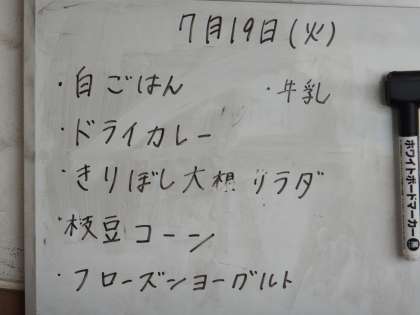 7月19日(火)
・白ごはん
・牛乳
・ドライカレー
・きりぼし大根 サラダ
・枝豆コーン
・フローズンヨーグルト
ホワイトボードマーカー